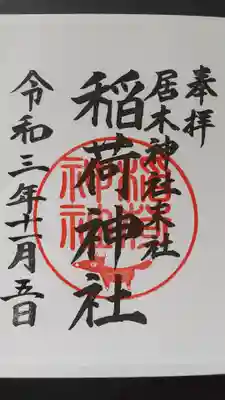 奉拝
居木神社末社
稲荷神社
令和三年十一月五日